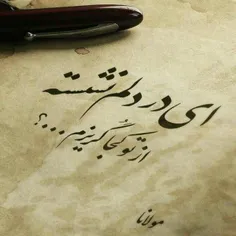 ای در دلم نشسته
از تو کجا گریزم...؟
مولانا